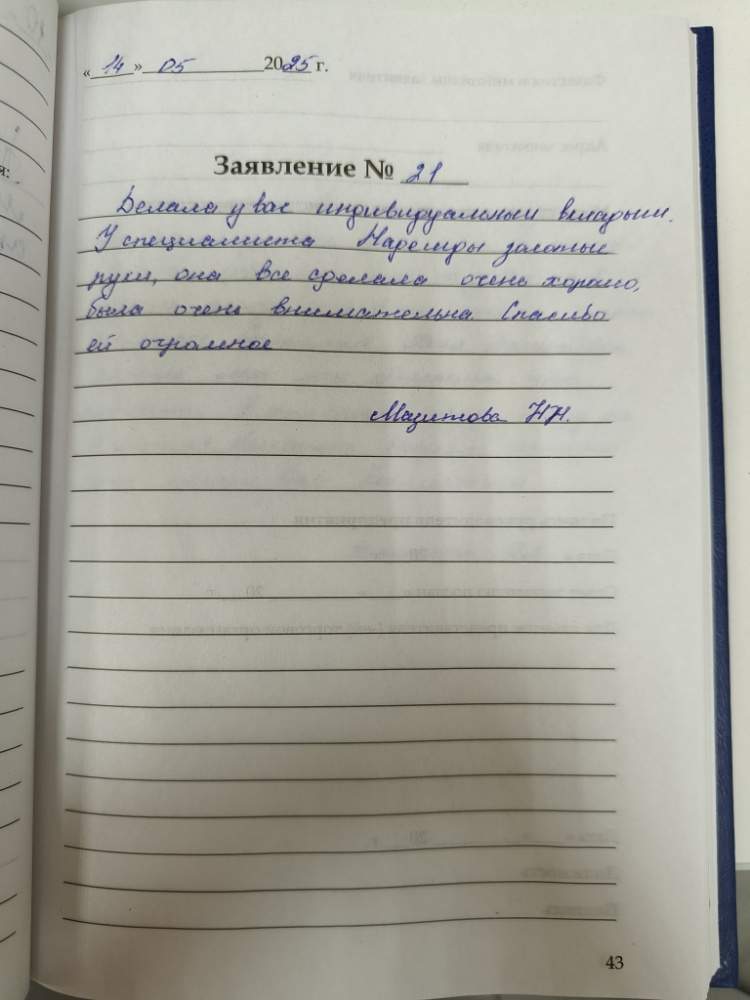 «14» 05 2025 г.
Заявление № 21
Делала у вас индивидуальныи вкладыши.
У специалиста Надежды золотые
руки, она все сделала очень хорошо,
была очень внимательна. Спасибо
ей огромное
Мазитова Н.Н.
43